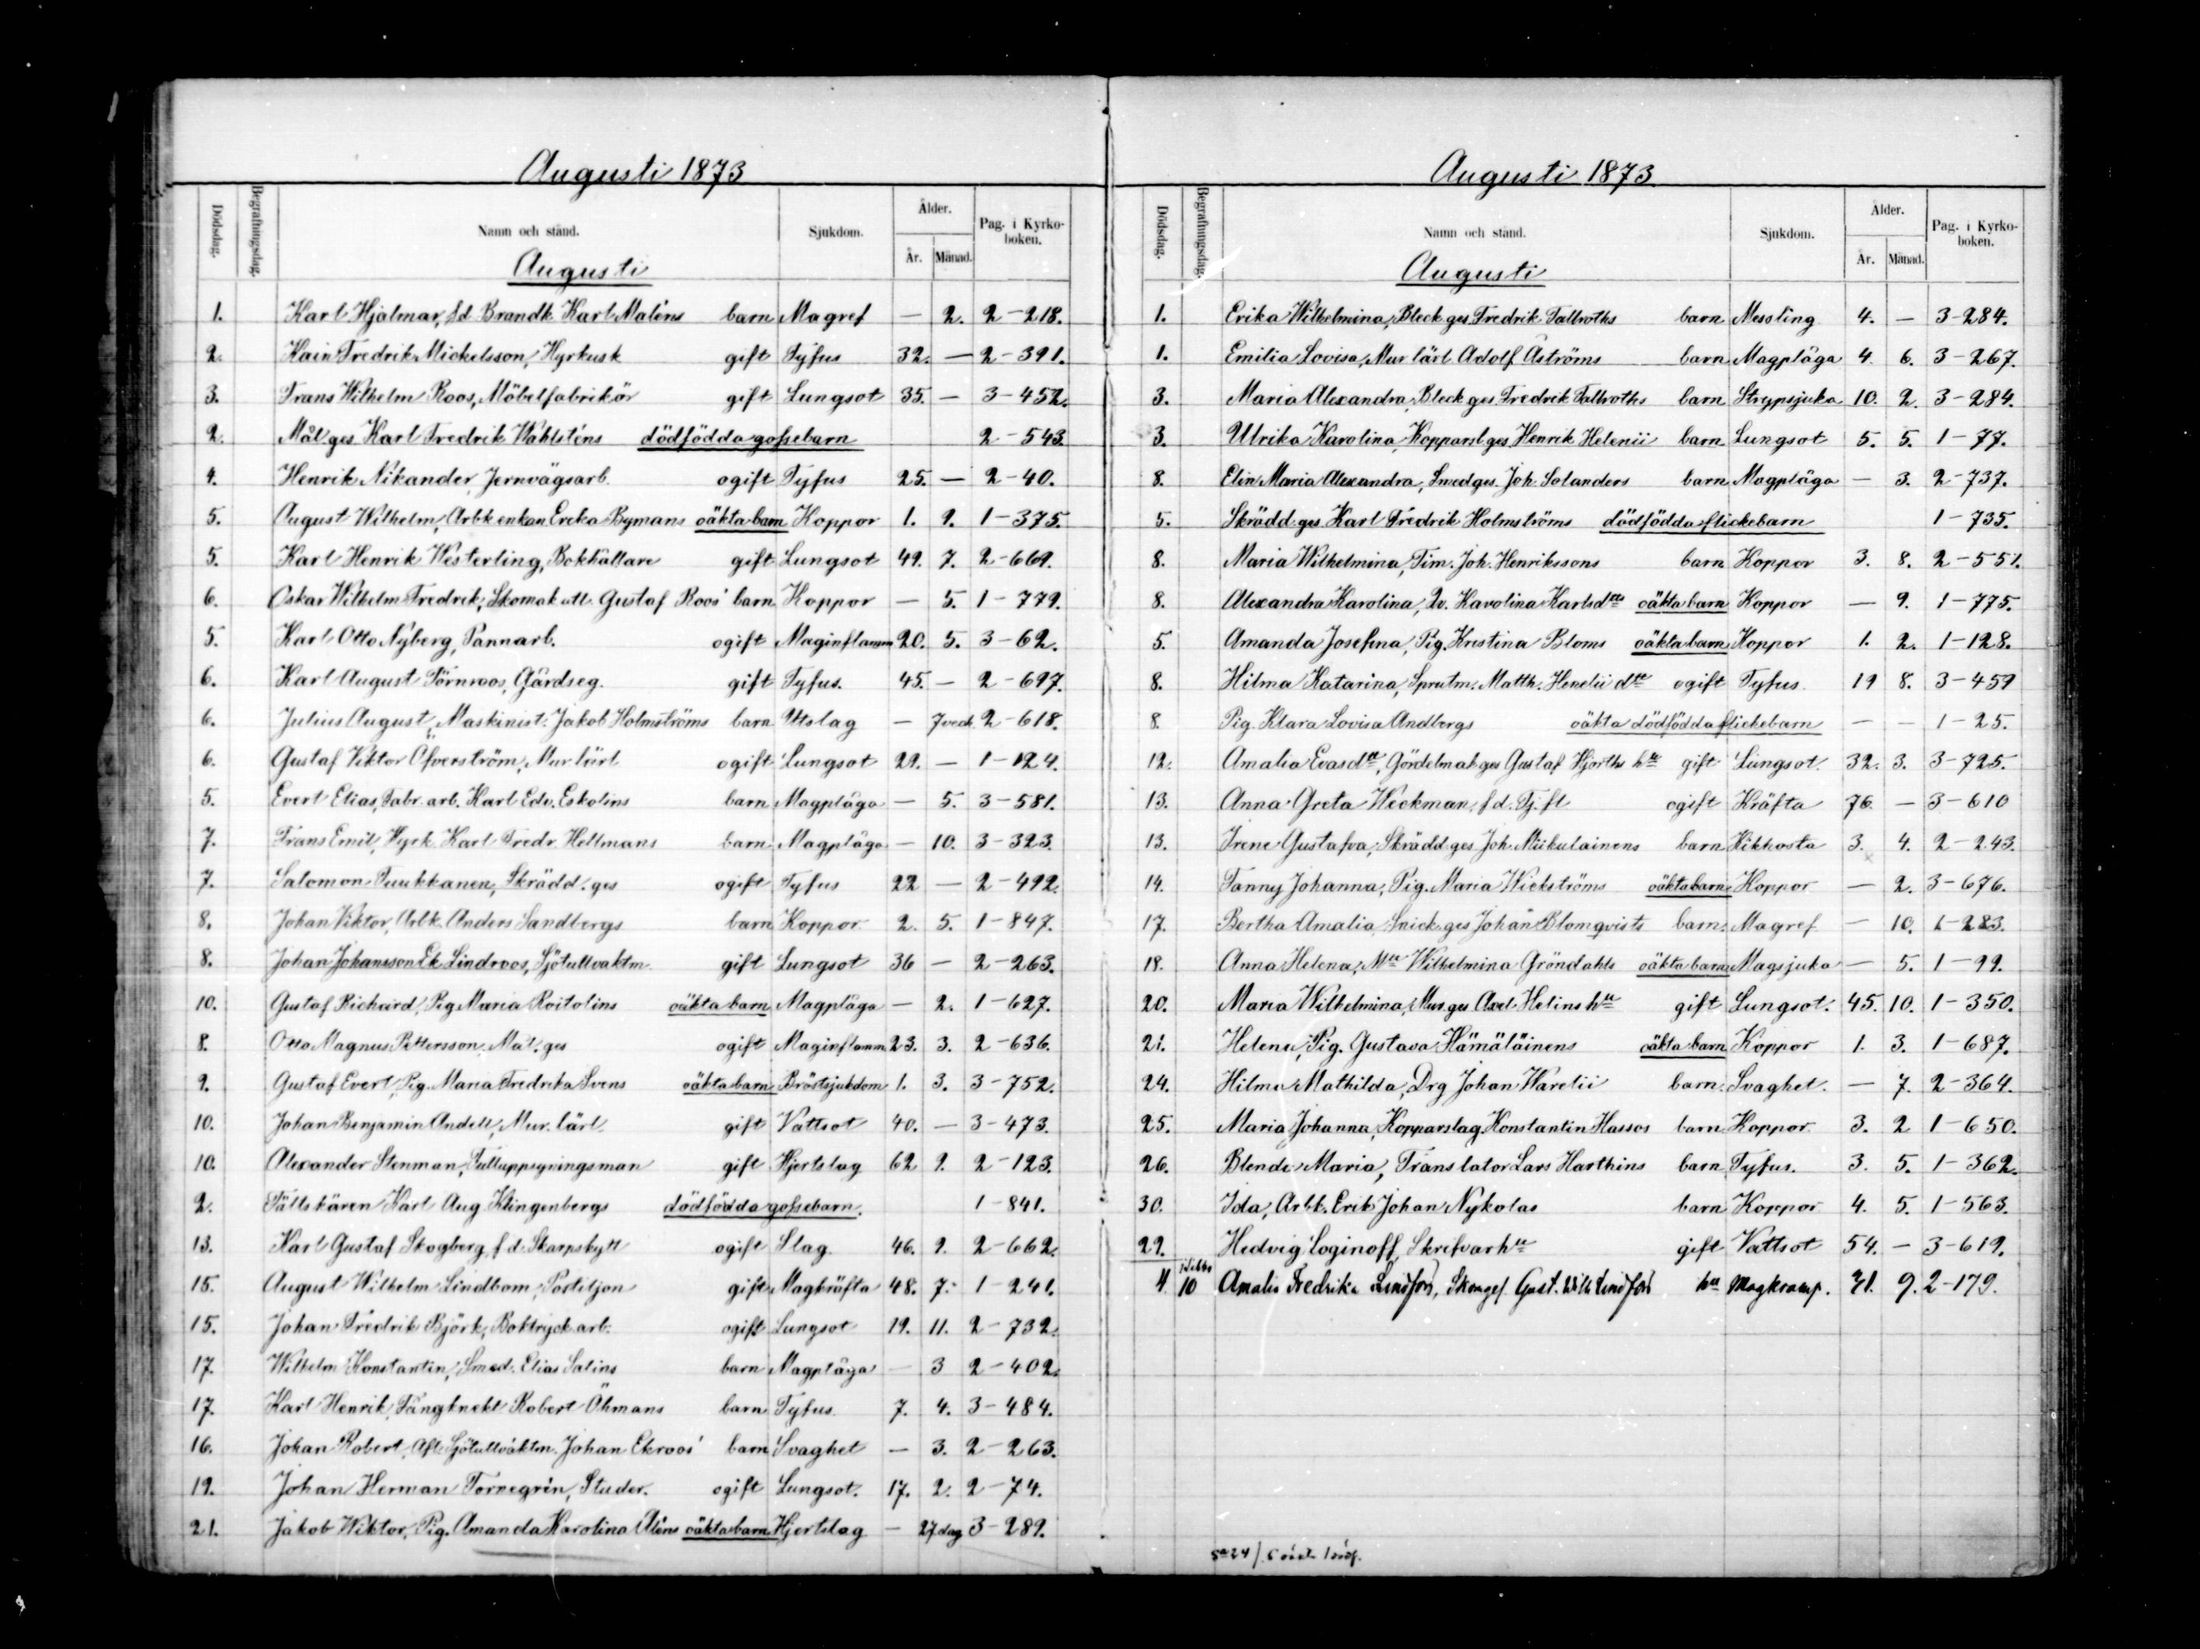 Augusti 1873
Dödsdag. Begrafningsdag. Namn och stånd. Sjukdom. Ålder. Pag. i Kyrko-boken.
År. Månad.
Augusti
1. Karl Hjalmar, fd Brandk Karl Maléns barn Magref — 2. 2-218.
2. Fredrik Mickelsson, Hyrkusk gift Tyfus 32. — 2-391.
3. Frans Wilhelm Roos, Möbelfabrikör gift Lungsot 35. — 3-452.
2. Målges. Karl Fredrik Wahlsténs dödfödda gossebarn 2-543.
4. Henrik Nikander, Jernvägsarb. ogift Tyfus 25. — 2-40.
5. August Wilhelm, Arbk enkan Erika Bymans oäkta barn Koppor 1. 9. 1-375.
5. Karl Henrik Westerling, Bokhållare gift Lungsot 49. 7. 2-669.
6. Oskar Wilhelm Fredrik, Skomak ått. Gustaf Roos' barn Koppor — 5. 1-779.
5. Karl Otto Nyberg, Pannarb. ogift Maginflamm 20. 5. 3-62.
6. Karl August Törnroos, Gårdseg. gift Tyfus. 45. — 2-697.
6. Julius August, Maskinist. Jakob Holmströms barn Utslag — 7 veck. 2-618.
6. Gustaf Viktor Öfverström, Mur lärl ogift Lungsot 29. — 1-124.
5. Evert Elias, Fabr. arb. Karl Edv. Eskolins barn Magplåga — 5. 3-581.
7. Frans Emil, Hyrk. Karl Fredr. Hellmans barn Magplåga — 10. 3-323.
7. Salomon Puukkanen, Skrädd. ges ogift Tyfus 22 — 2-492.
8. Johan Viktor, Arbk. Anders Sandbergs barn Koppor 2. 5. 1-847.
8. Johan Johansson Ek Lindroos, Sjötullvaktm. gift Lungsot 36 — 2-263.
10. Gustaf Richard, Pig. Maria Roitolins oäkta barn Magplåga — 2. 1-627.
8. Otto Magnus Pettersson, Mål. ges ogift Maginflamm. 23. 3. 2-636.
9. Gustaf Evert, Pig. Maria Fredrika Svens oäkta barn Bröstsjukdom 1. 3. 3-752.
10. Johan Benjamin Andell, Mur. lärl. gift Vattsot 40. — 3-473.
10. Alexander Stenman, Tulluppsyningsman gift Hjertslag 62 9. 2-123.
2. Fältskären Karl Aug. Klingenbergs dödfödda gossebarn. 1-841.
13. Karl Gustaf Skogberg, f.d. Skarpskytt ogift Slag 46. 9. 2-662.
15. August Wilhelm Lindbom, Postiljon gift Magkräfta 48. 7. 1-241.
15. Johan Fredrik Björk, Boktryck. arb. ogift Lungsot 19. 11. 2-732.
17. Wilhelm Konstantin, Smed. Elias Salins barn Magplåga — 3 2-402.
17. Karl Henrik, Fångknekt Robert Öhmans barn Tyfus. 7. 4. 3-484.
16. Johan Robert, Afl. Sjötullvaktm. Johan Ekroos' barn Svaghet — 3. 2-263.
19. Johan Herman Tornegrin, Studer. ogift Lungsot. 17. 2. 2-74.
21. Jakob Wiktor, Pig. Amanda Karolina Aléns oäkta barn Hjertslag — 27 dag 3-289.
Augusti 1873
Dödsdag. Begrafningsdag. Namn och stånd. Sjukdom. Ålder. Pag. i Kyrko-boken.
År. Månad.
Augusti
1. Erika Wilhelmina, Bleck ges. Fredrik Tallroths barn Messling 4. — 3-284.
1. Emilia Lovisa, Mur lärl Adolf Åströms barn Magplåga 4. 6. 3-267.
3. Maria Alexandra, Bleck ges. Fredrik Tallroths barn Strypsjuka 10. 2. 3-284.
3. Ulrika Karolina, Kopparsl ges. Henrik Helenii barn Lungsot 5. 5. 1-77.
8. Elin Maria Alexandra, Smedges. Joh. Solanders barn Magplåga — 3. 2-737.
5. Skrädd. ges. Karl Fredrik Holmströms dödfödda flickebarn 1-735.
8. Maria Wilhelmina, Tim. Joh. Henrikssons barn Koppor 3. 8. 2-551.
8. Alexandra Karolina, Qv. Karolina Karlsdtrs oäkta barn Koppor — 9. 1-775.
5. Amanda Josefina, Pig. Kristina Bloms oäkta barn Koppor 1. 2. 1-128.
8. Hilma Katarina, Sprutm. Matth. Henelii dtr ogift Tyfus 19 8. 3-459
8. Pig. Klara Lovisa Andbergs oäkta dödfödda flickebarn — — 1-25.
12. Amalia Evasdtr, Gördelmak ges Gustaf Hjorths hu gift Lungsot. 32. 3. 3-725.
13. Anna Greta Weckman, f.d. Tj. fl ogift Kräfta 76. — 3-610
13. Irene Gustafva, Skrädd. ges Joh. Miikulainens barn Kikhosta 3. 4. 2-243.
14. Fanny Johanna, Pig. Maria Wickströms oäkta barn Koppor — 2. 3-676.
17. Bertha Amalia, Snick. ges Johan Blomqvists barn. Magref — 10. 1-283.
18. Anna Helena, Mll Wilhelmina Gröndahls oäkta barn Magsjuka — 5. 1-99.
20. Maria Wilhelmina, Mur. ges Axel Helins hu gift Lungsot. 45. 10. 1-350.
21. Helena, Pig. Gustava Hämäläinens oäkta barn Koppor 1. 3. 1-687.
24. Hilma Mathilda, Drg Johan Warelii barn. Svaghet. — 7. 2-364.
25. Maria Johanna, Kopparslag. Konstantin Hassos barn Koppor. 3. 2 1-650.
26. Blenda Maria, Translator Lars Harthins barn Tyfus. 3. 5. 1-362.
30. Ida, Arbk. Erik Johan Nykolas barn Koppor 4. 5. 1-563.
29. Hedvig Loginoff, Skrifvarhu gift Vattsot 54. — 3-619.
4 10 Amalia Fredrika Lindfors, Skomges. Gust. Wilh Lindfors hu Magkramp. 41. 9. 2-179.